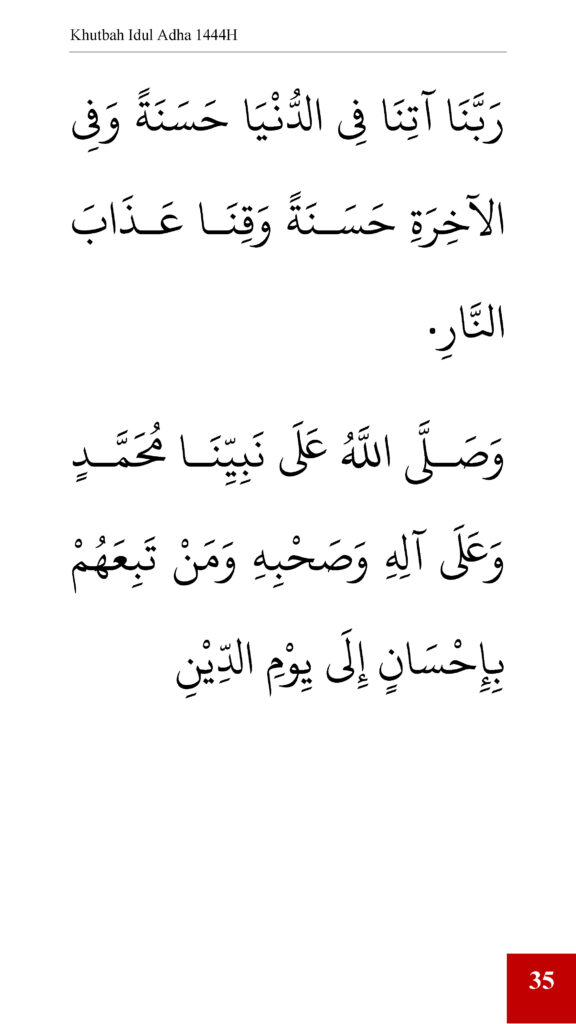 Khutbah Idul Adha 1444H
رَبَّنَا آتِنَا فِى الدُّنْيَا حَسَنَةً وَفِى
الآخِرَةِ حَسَـــنَةً وَقِنَـــا عَـــذَابَ
النَّارِ.
وَصَـــلَّى اللَّهُ عَلَى نَبِيِّنَـــا مُحَمَّـــدٍ
وَعَلَى آلِهِ وَصَحْبِهِ وَمَنْ تَبِعَهُمْ
بِإِحْسَانٍ إِلَى يِوْمِ الدِّيْنِ
35